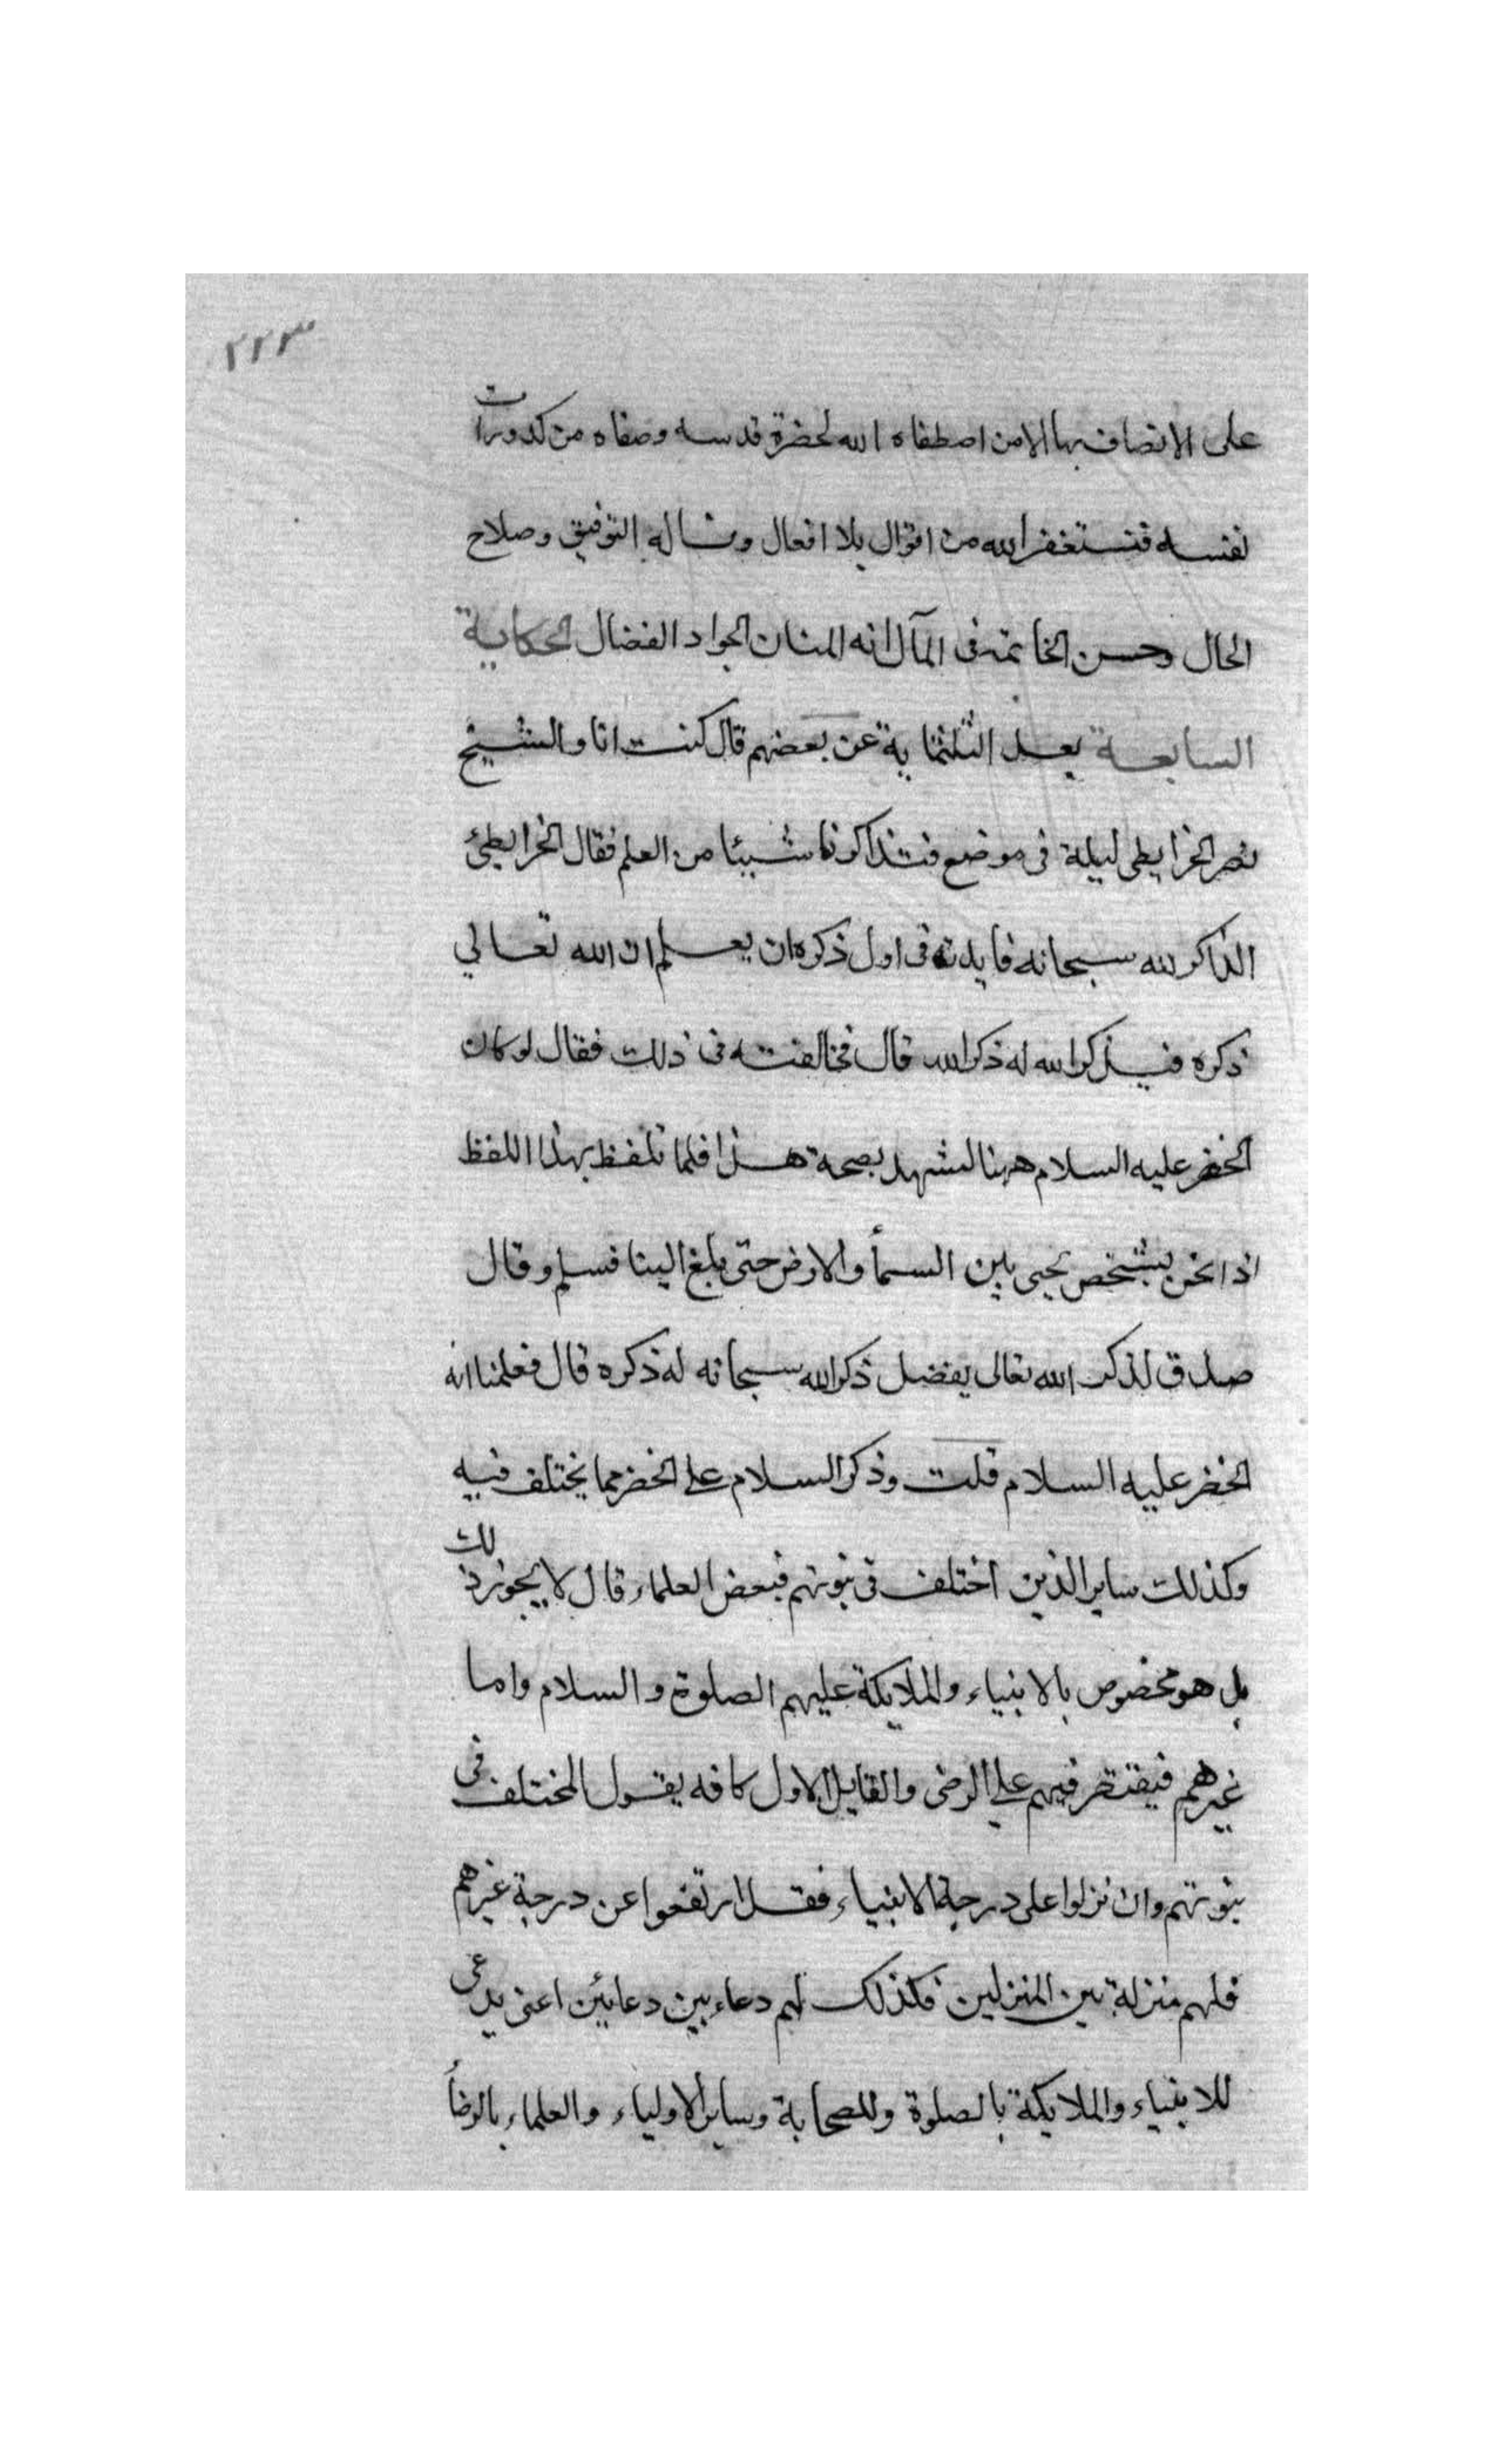 ٢٢٣
على الاتصاف بها الا من اصطفاه الله لحضرة قدسه وصفاه من كدورات
نفسه فنستغفر الله من اقوال بلا افعال ونساله التوفيق وصلاح
الحال وحسن الخاتمة فى المآل انه المنان الجواد الفضال الحكاية
السابعة بعد الثلثماية عن بعضهم قال كنت انا والشيخ
نصر الخرايطى ليلة فى موضع فتذاكرنا شيئا من العلم فقال الخرايطى
الذاكر لله سبحانه فايدته فى اول ذكره ان يعلم ان الله تعالي
ذكره فبذكر الله له ذكر الله قال فخالفته فى ذلك فقال لو كان
الخضر عليه السلام ههنا لشهد بصحة هذا فلما تلفظ بهذا اللفظ
اذا نحن بشخص يجى بين السمأ والارض حتى بلغ الينا فسلم وقال
صدق الذاكر الله تعالى بفضل ذكر الله سبحانه له ذكره قال فعلمنا انه
الخضر عليه السلام قلت وذكر السلام على الخضر مما يختلف فيه
وكذلك ساير الذين اختلف فى نبوتهم فبعض العلماء قال لا يجوز ذلك
بل هو مخصوص بالانبياء والملايكة عليهم الصلوة والسلام واما
غيرهم فيقتصر فيهم على الرضى والقايل الاول كافه يقول المختلف فى
نبوتهم وان نزلوا على درجة الانبياء فقد ارتفعوا عن درجة غيرهم
فلهم منزلة بين المنزلين فكذلك لهم دعاء بين دعائين اعنى يدعى
للانبياء والملايكة بالصلوة وللصحابة وساير الاولياء والعلماء بالرضأ